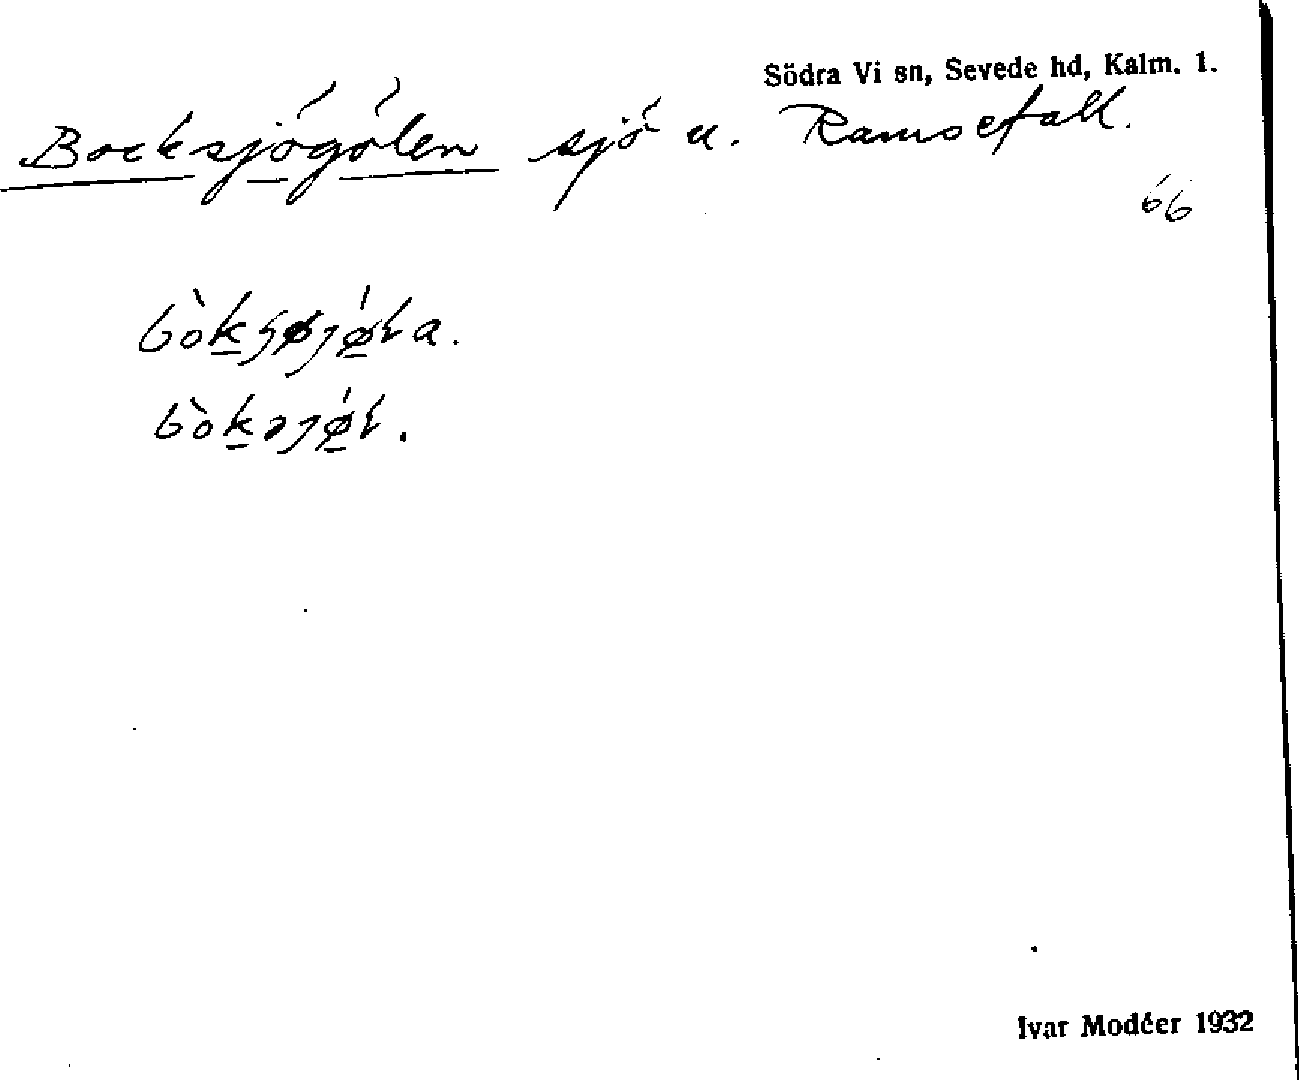 Södra Vi sn, Sevede hd, Kalm. l.
Bocksjögölen sjö u. Ramsefall.
66
bòksjøjǿla.
bòkəjǿl.
Ivar Modéer 1932